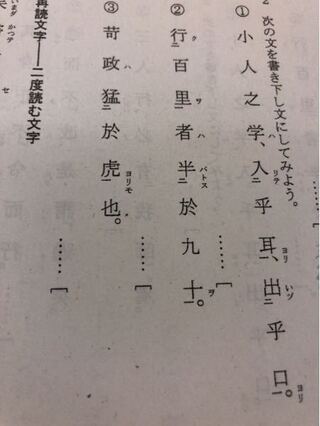 2 次の文を書き下し文にしてみよう。
① 小人之学ハ、入リテ二乎耳ヨリ一、出いヅ二乎口ヨリ一。
……[
② 行ク二百里ヲ一者ハ半バトス二於九十ヲ一。
……[
③ 苛政ハ猛二於虎ヨリモ一也。
……[
再読文字──二度読む文字